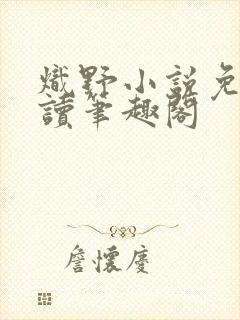 熾野小說免
讀筆趣閣
詹懷慶